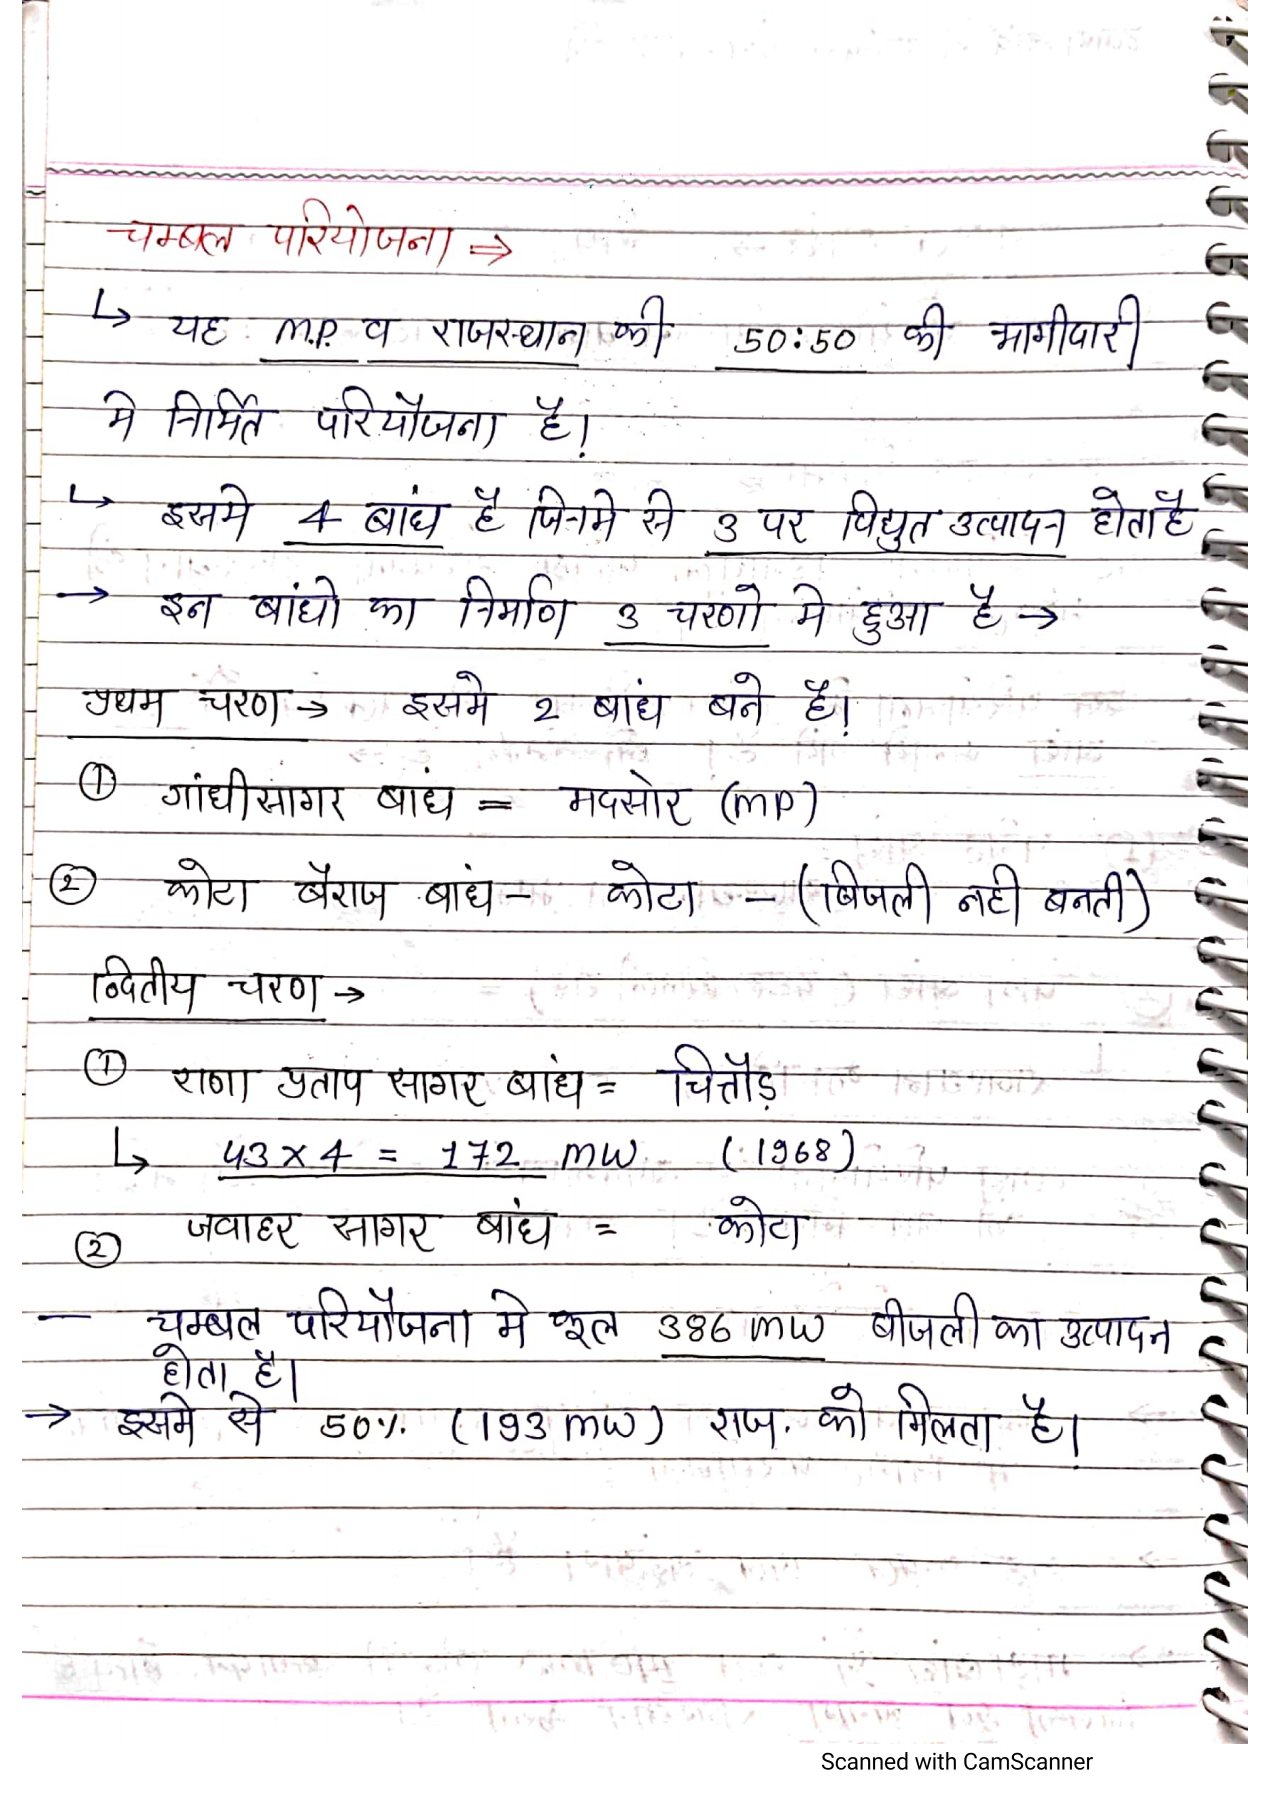 चम्बल परियोजना ⇒
↳ यह M.P. व राजस्थान की 50:50 की भागीदारी
मे निर्मित परियौजना है।
↳ इसमे 4 बांध है जिनमे से 3 पर विद्युत उत्पादन होता है
→ इन बांधो का निर्माण 3 चरणो मे हुआ है →
प्रथम चरण → इसमे 2 बांध बने है।
① गांधीसागर बांध = मदसोर (MP)
② कोटा बैराज बांध - कोटा - (बिजली नही बनती)
द्वितीय चरण →
① राणा प्रताप सागर बांध = चित्तौड़
↳ 43 x 4 = 172 MW (1968)
② जवाहर सागर बांध = कोटा
- चम्बल परियौजना मे कुल 386 MW बीजली का उत्पादन
होता है।
→ इसमे से 50% (193 MW) राज. को मिलता है।
Scanned with CamScanner